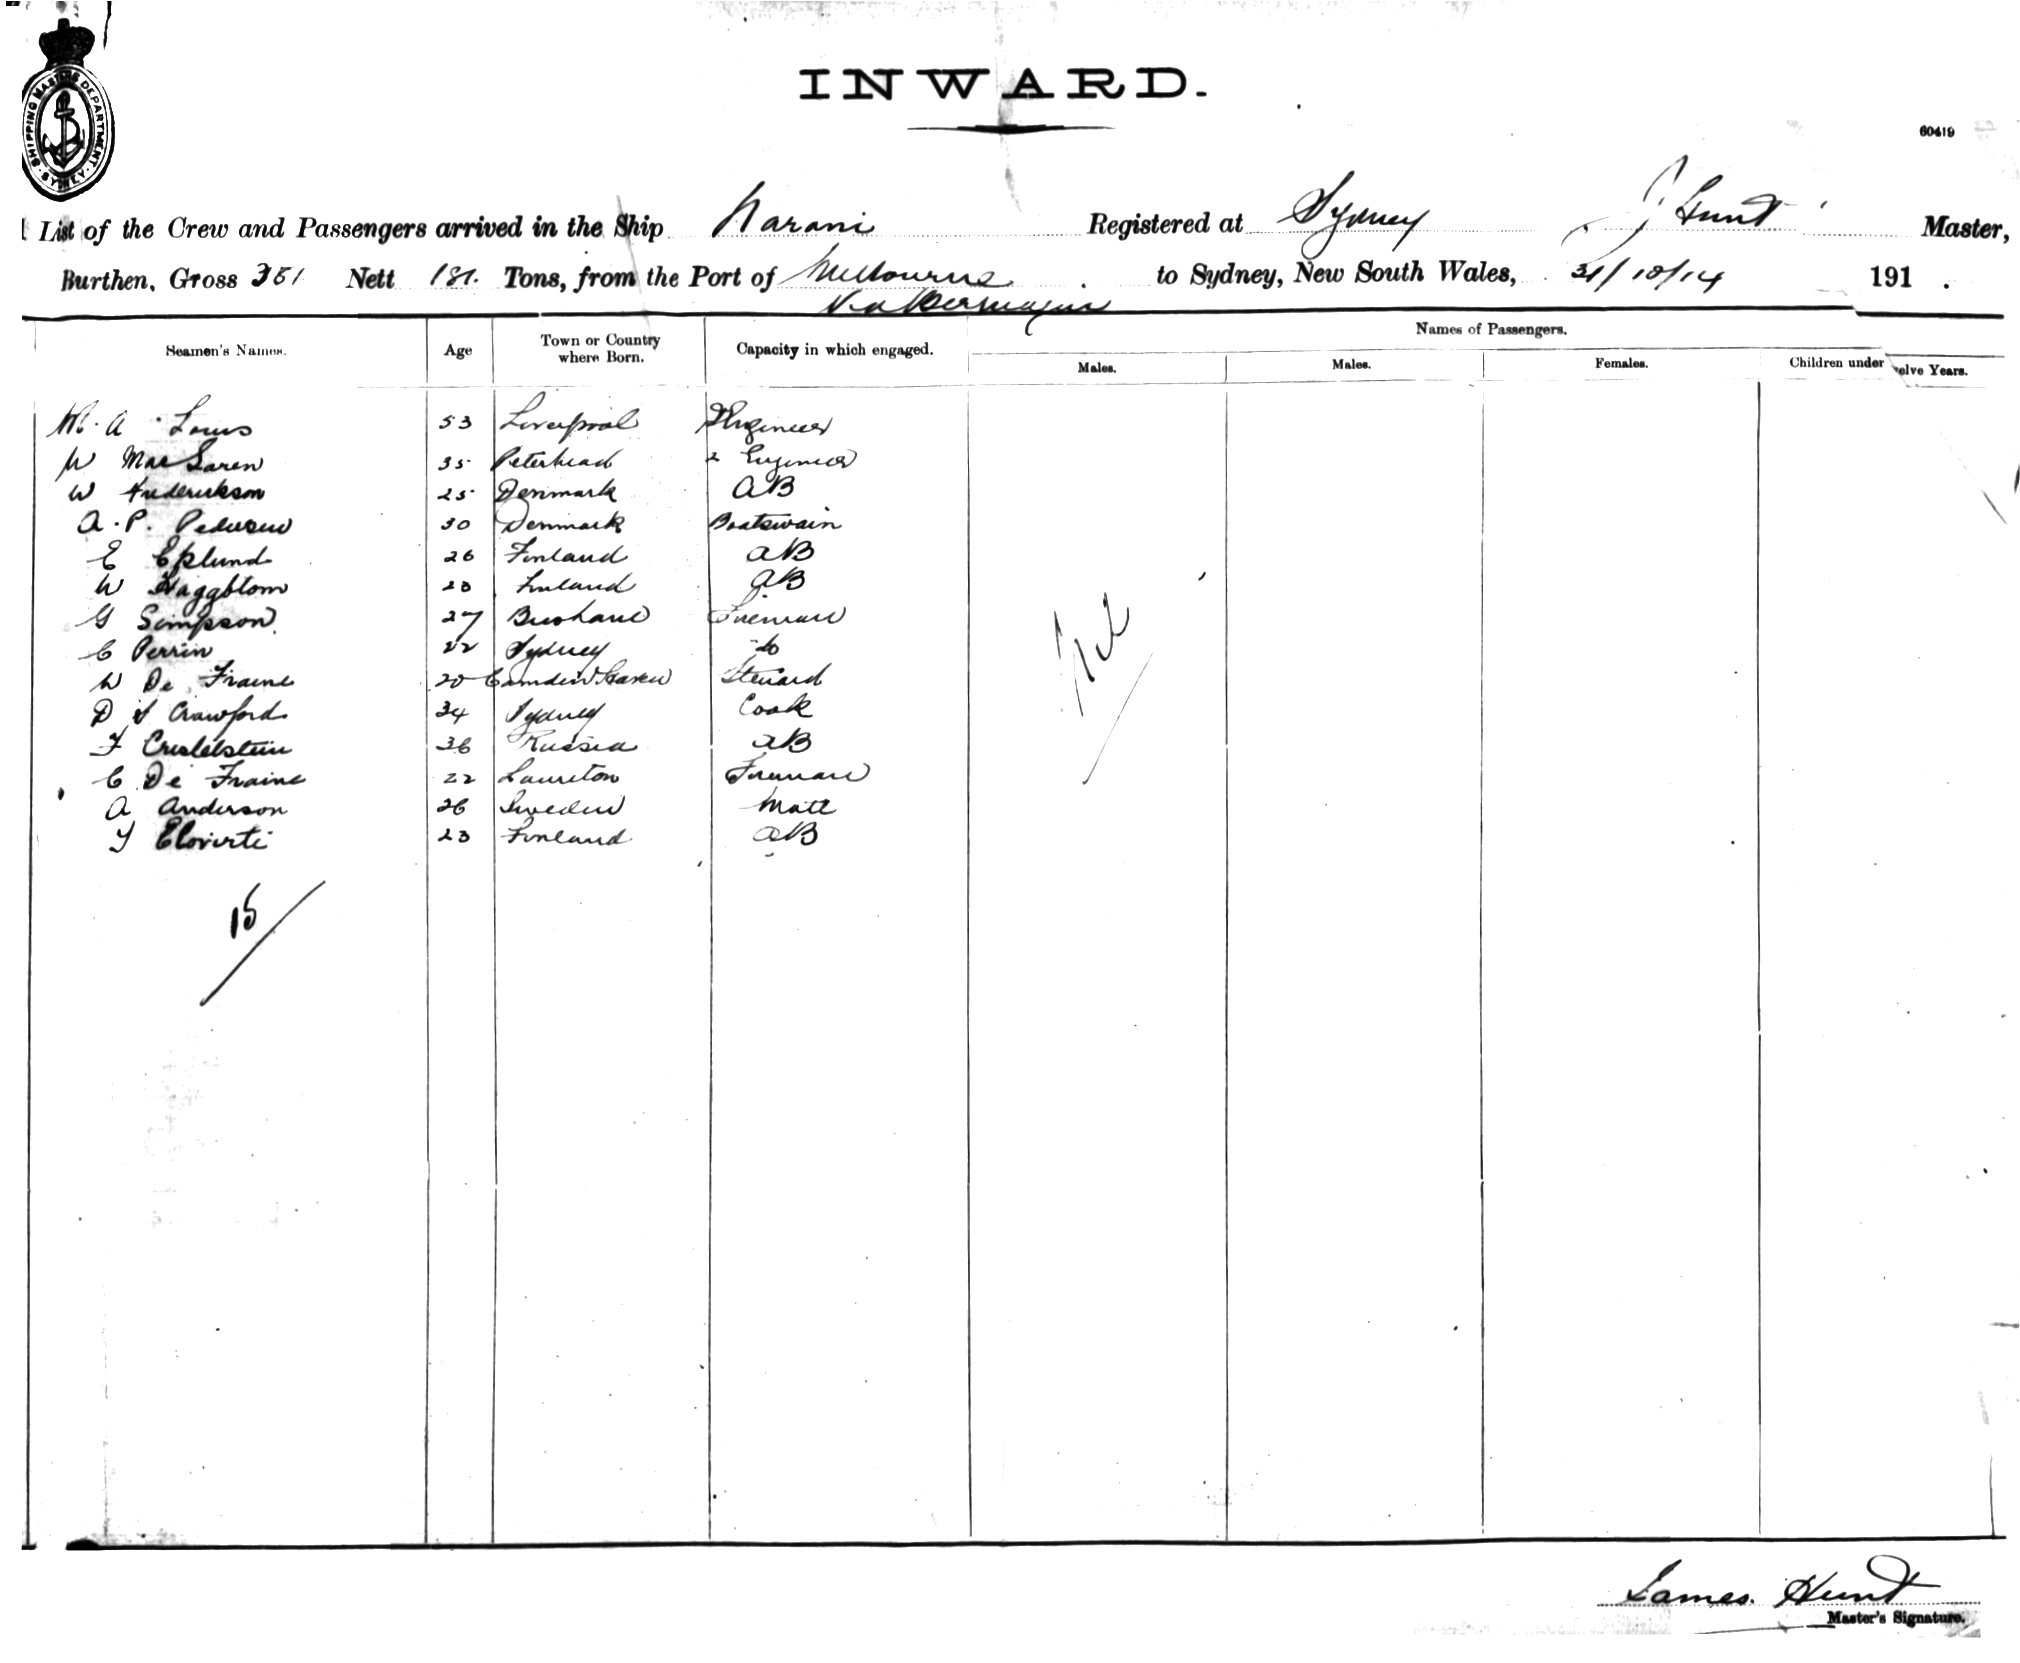 SHIPPING MASTERS DEPARTMENT · SYDNEY ·
INWARD.
60419
List of the Crew and Passengers arrived in the Ship Narani Registered at Sydney J Hunt Master,
Burthen, Gross 381 Nett 181. Tons, from the Port of Melbourne to Sydney, New South Wales, 31/10/14 191 .
Via Bermagui
Seamen's Names. Age Town or Country where Born. Capacity in which engaged. Names of Passengers.
Males. Males. Females. Children under welve Years.
A Louis 53 Liverpool Engineer
W MacLaren 35 Peterhead 2 Engineer
W Frederickson 25 Denmark AB
A. P. Pedersen 30 Denmark Boatswain
E Eklund 26 Finland AB
W Haggblom 23 Finland AB
G Simpson 27 Brisbane Fireman
C Perrin 22 Sydney do
W De Fraine 20 Camden Haven Steward
D S Crawford 34 Sydney Cook
F 36 Russia AB
C De Fraine 22 Laurieton Fireman
A Anderson 26 Sweden Mate
Y Elovirti 23 Finland AB
Nil
15
James Hunt
Master's Signature.